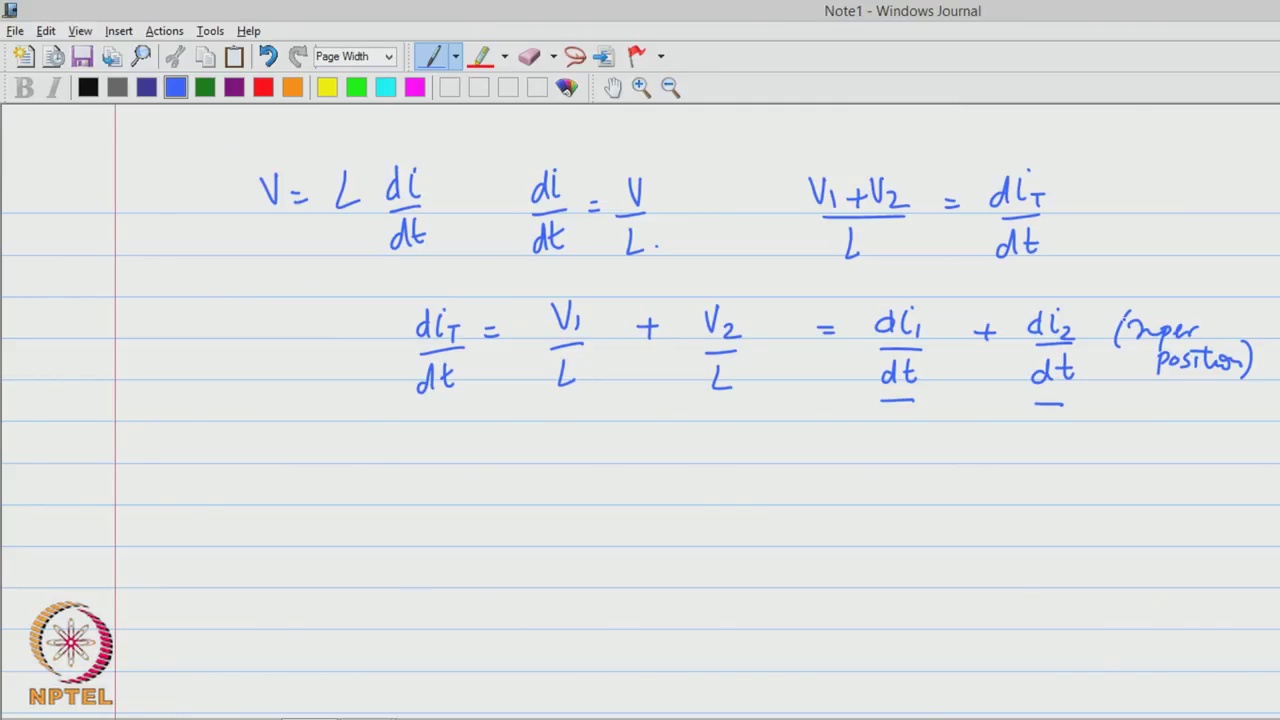 Note1 - Windows Journal
File Edit View Insert Actions Tools Help
Page Width
B I
V = L di/dt di/dt = V/L. V1+V2/L = diT/dt
diT/dt = V1/L + V2/L = di1/dt + di2/dt (super
position)
NPTEL